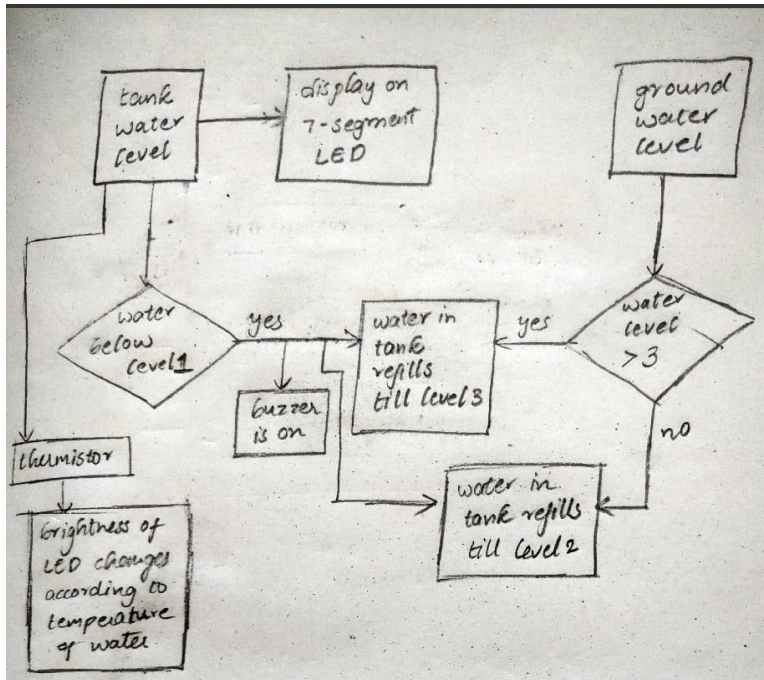 tank
water
level
display on
7-segment
LED
ground
water
level
water
below
level 1
yes
water in
tank
refills
till level 3
yes
water
level
>3
buzzer
is on
no
thermistor
water in
tank refills
till level 2
brightness of
LED changes
according to
temperature
of water